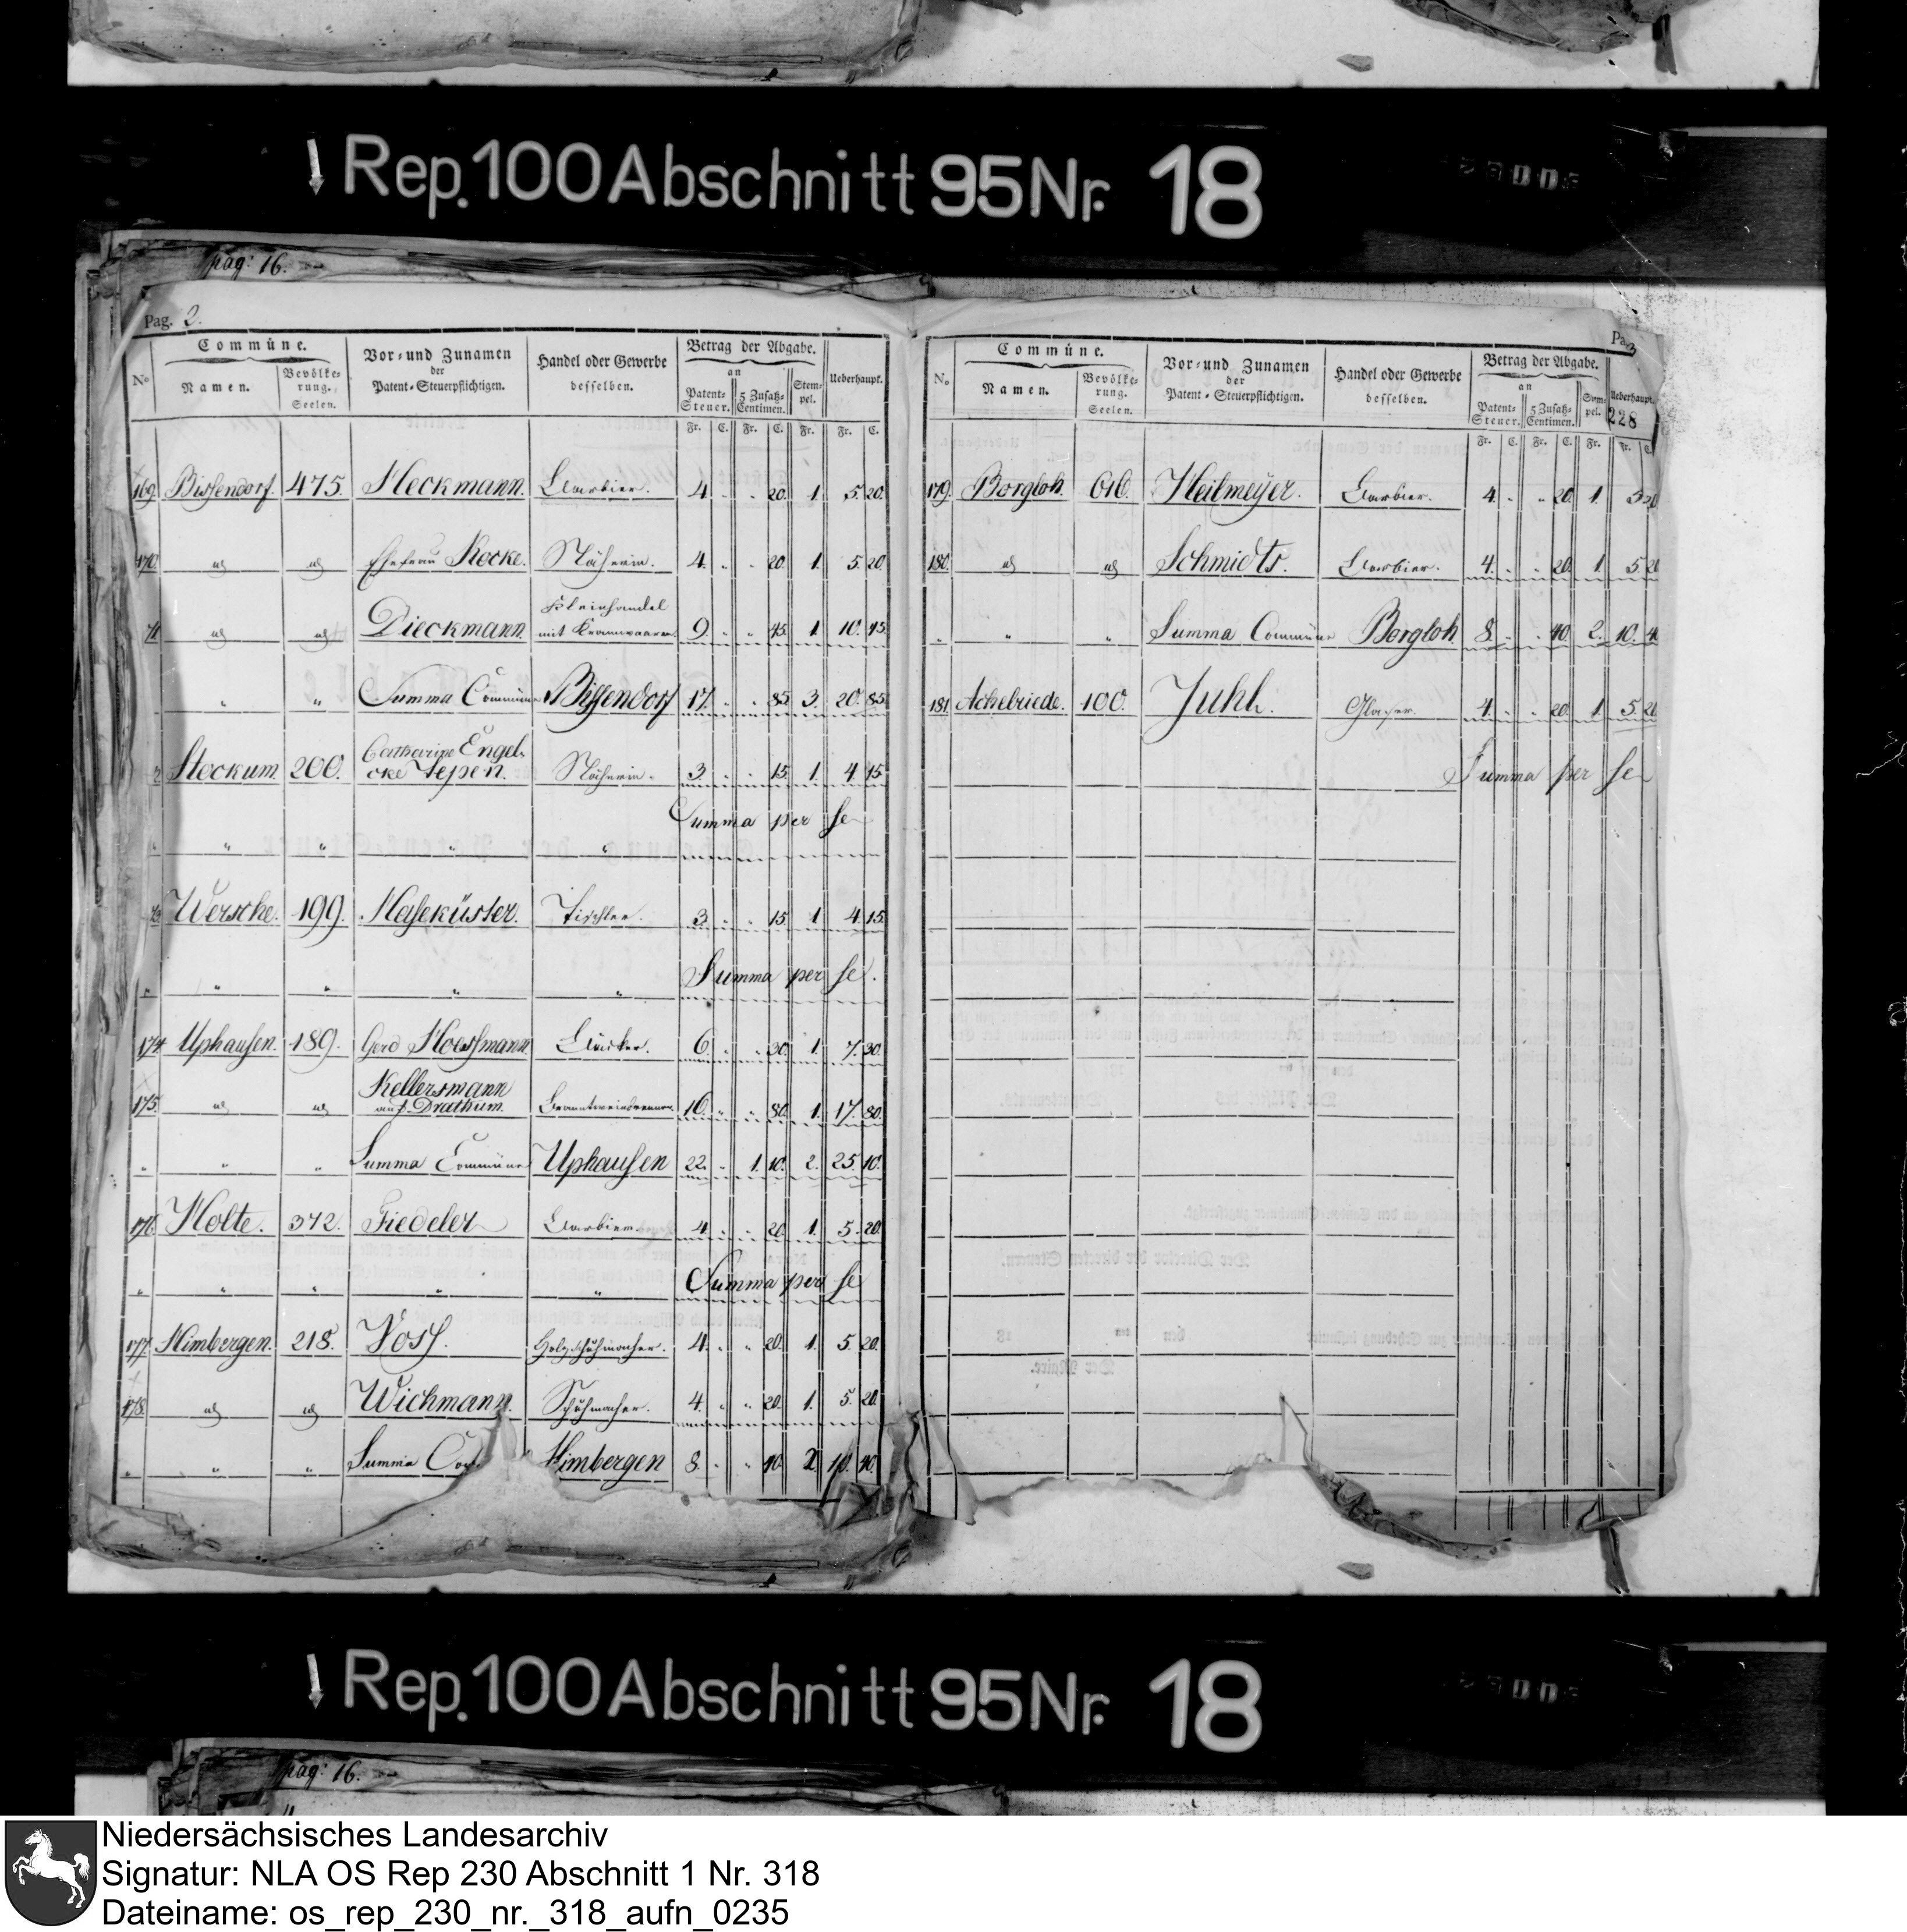 Rep. 100 Abschnitt 95 Nr. 18
pag: 16.
Pag. 2.
Commüne.
Vor- und Zunamen
der
Patent-Steuerpflichtigen.
Handel oder Gewerbe
desselben.
Betrag der Abgabe.
No
Namen.
Bevölke-
rung.
Seelen.
an
Patent-
Steuer.
5 Zusatz-
Centimen.
Stem-
pel.
Ueberhaupt.
Fr. C. Fr. C. Fr. Fr. C.
169. Bissendorf. 475. Heckmann. Barbier. 4. " " 20. 1. 5. 20.
170. id id Ehefrau Kocke. Näherin. 4. " " 20. 1. 5. 20.
71 id id Dieckmann. Kleinhandel
mit Kramwaaren. 9. " " 45. 1. 10. 45.
" " Summa Commüne Bissendorf 17. " " 85. 3. 20. 85.
2 Stockum. 200. Catharine Engel
cke Tepen. Näherin. 3. " " 15. 1. 4. 15.
Summa per se
" " " " "
73. Wersche. 199. Haseküster. Tischler. 3. " " 15. 1. 4. 15.
Summa per se.
" " " " "
174 Uphausen. 189. Gerd Hoessmann Bäcker. 6. " " 30. 1. 7. 30.
175. id id Kellersmann
auf Drathum. Branntweinbrenner. 16. " " 80. 1. 17. 80.
" " " Summa Commüne Uphausen 22. " 1. 10. 2. 25. 10.
176. Holte. 372. Fiedeler Barbier. 4. " " 20. 1. 5. 20.
Summa per se
" " " " "
177. Himbergen. 218. Voss. Holzschuhmacher. 4. " " 20. 1. 5. 20.
178. id id Wichmann. Schuhmacher. 4. " " 20. 1. 5. 20.
" " " Summa Himbergen 8. " " 40. 2. 10. 40.
3
Commüne.
Vor- und Zunamen
der
Patent-Steuerpflichtigen.
Handel oder Gewerbe
desselben.
Betrag der Abgabe.
No.
Namen.
Bevölke-
rung.
Seelen.
an
Patent-
Steuer.
5 Zusatz-
Centimen.
Stem-
pel.
Ueberhaupt.
228
Fr. C. Fr. C. Fr. Fr. C.
179. Borgloh. 616. Heilmeyer. Barbier. 4. " " 20. 1. 5 20
180. id id Schmidts. Barbier. 4. " " 20. 1. 5. 20
" " " Summa Commüne Borgloh 8. " " 40. 2. 10. 40
181. Ackelriede. 100. Juhl. Glaser. 4. " " 20. 1. 5. 20
Summa per se
Rep. 100 Abschnitt 95 Nr. 18
pag: 16.
Niedersächsisches Landesarchiv
Signatur: NLA OS Rep 230 Abschnitt 1 Nr. 318
Dateiname: os_rep_230_nr._318_aufn_0235